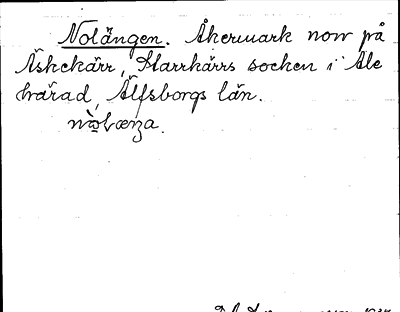 Nolängen. Åkermark norr på
Äskekärr, Starrkärrs socken i Ale
härad, Älfsborgs län.